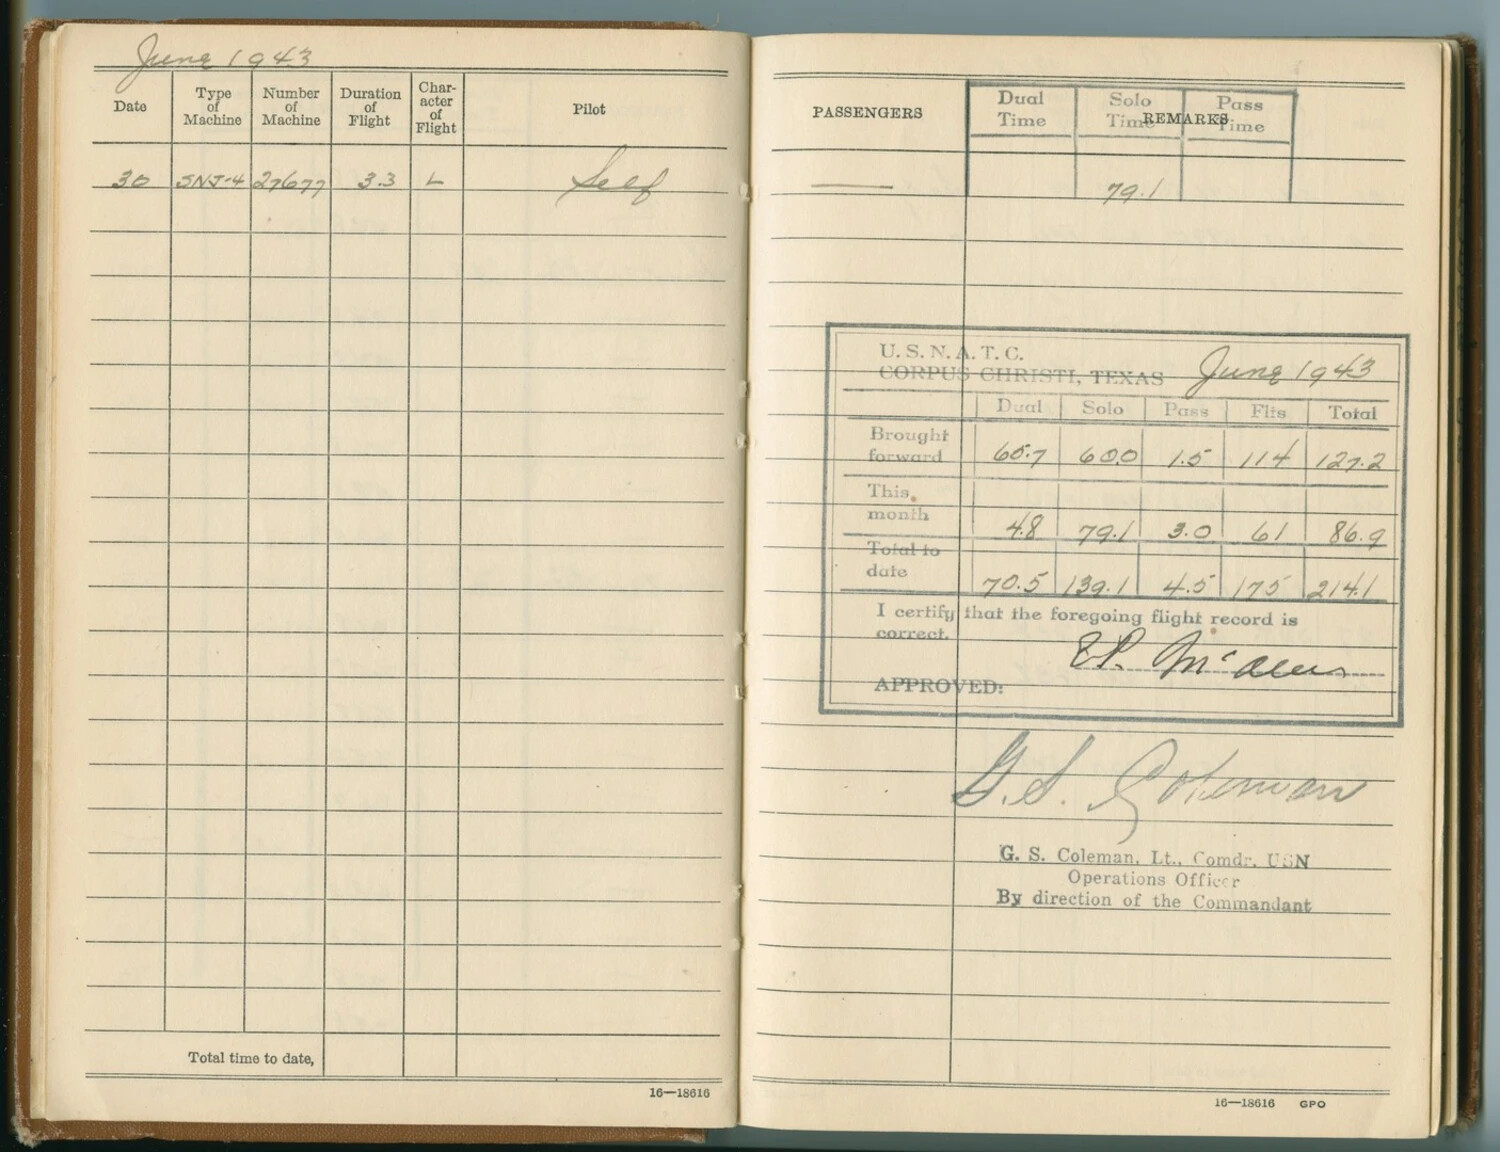 June 1943
Date Type of Machine Number of Machine Duration of Flight Char-acter of Flight Pilot
30 SNJ-4 27677 3.3 L Self
Total time to date,
16—18616
PASSENGERS REMARKS
Dual Time Solo Time Pass Time
— 79.1
U. S. N. A. T. C.
CORPUS CHRISTI, TEXAS June 1943
Dual Solo Pass Flts Total
Brought forward 65.7 60.0 1.5 114 127.2
This month 4.8 79.1 3.0 61 86.9
Total to date 70.5 139.1 4.5 175 214.1
I certify that the foregoing flight record is
correct.
APPROVED:
G. S. Coleman
G. S. Coleman, Lt., Comdr. USN
Operations Officer
By direction of the Commandant
16—18616 GPO